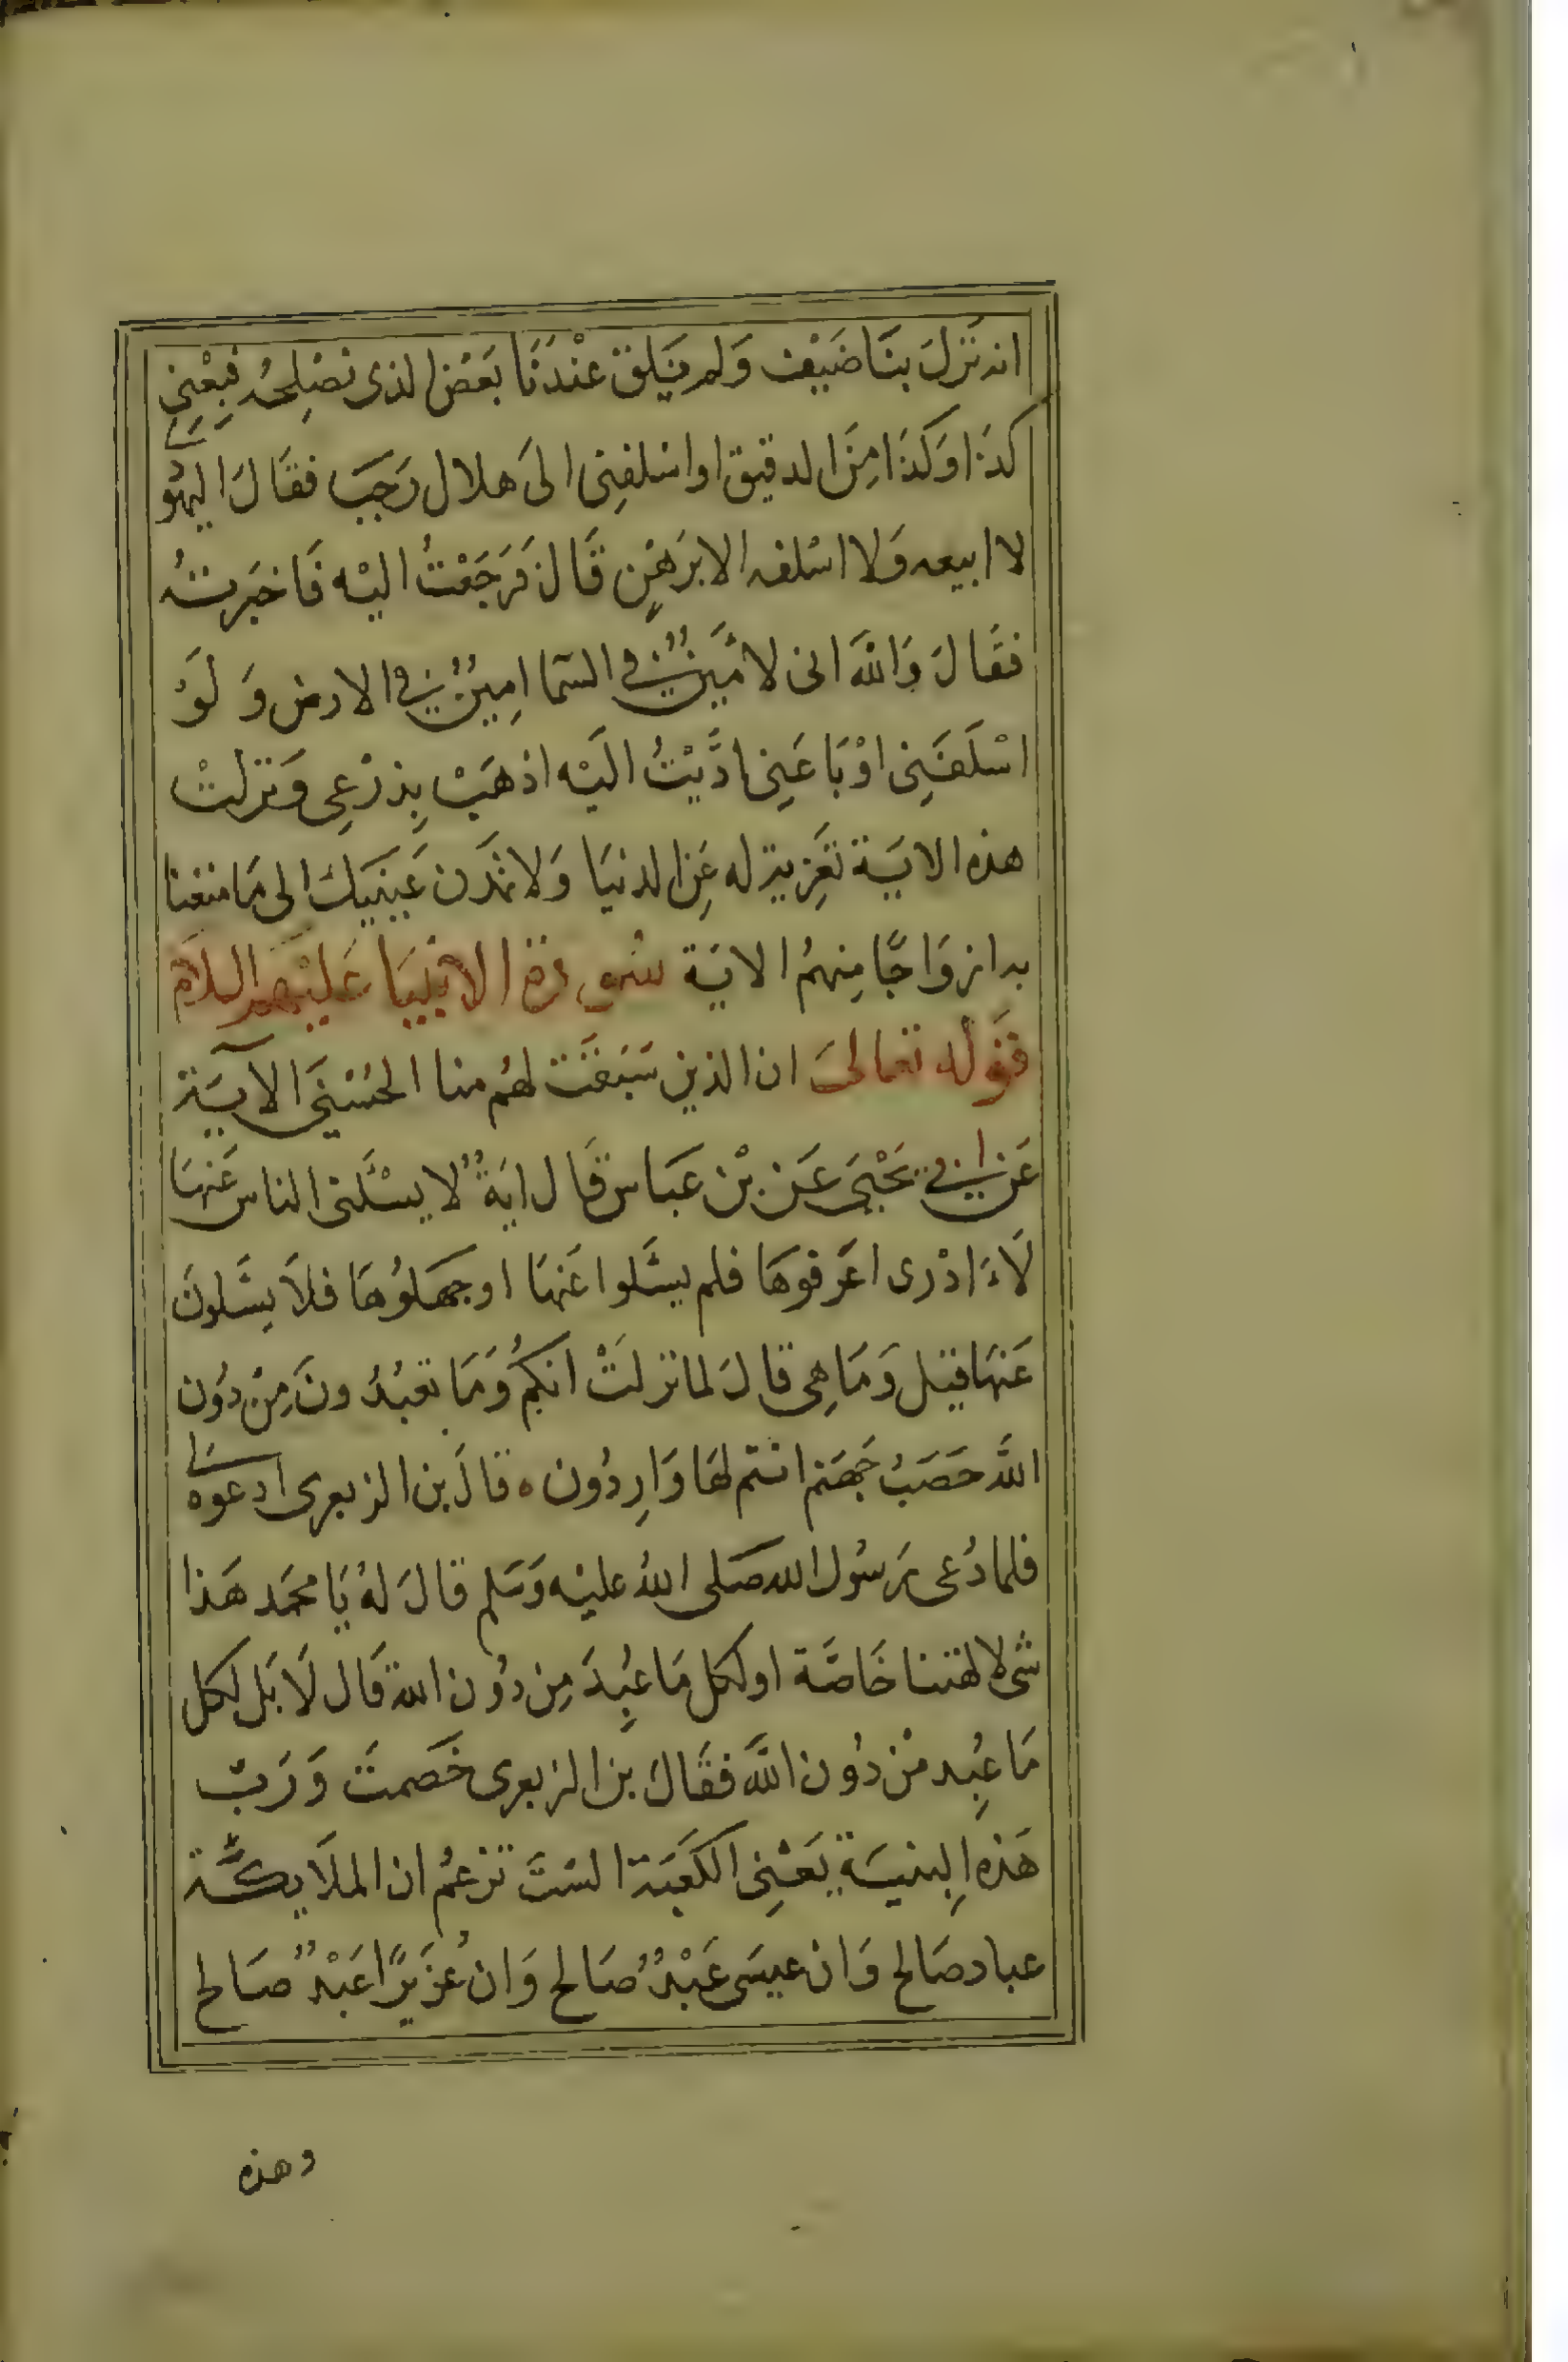 انه نَزلَ بنَا ضَيْفٌ وَلم يَلق عنْدَنَا بَعَض الذى نصْلِحُه فبِعْنِى
كذَا وَكَذَا مِنَ الدقيق او اسْلفنِى الىَ هلال رَجَبَ فقَالَ اليهُودى
لا ابيعه وَلا اسْلفه الا برَهْنٍ قَالَ فَرَجَعْتُ اليْه فَاخبَرتهُ
فقَالَ وَاللهَ انى لامَينٌ فى السَّما امِينٌ فى الارض وَ لَوْ
اسْلَفَنِى اوْ بَاعَنِى ادَّيْتُ الَيْه اذهَبْ بِدرْعِى وَنزلتْ
هذه الايَة تعَزِية له عَنِ الدنيَا وَلا تمدّن عَينَيكَ الى مَا متعنا
به ازوَاجًا مِنهمُ الايَة سُورة الانبيَا عَليْهم السلام
قوله تعالىَ ان الذين سَبَقَت لهُم منا الحُسْنىَ الآيَة
عَن ابى يَحْيىَ عَن بْن عَبَاس قَال ايَةٌ لا يسْئَلنى الناس عَنهَا
لَاءَ ادْرى اعَرفوهَا فلم يسَئلوا عَنهَا او جهَلوُهَا فلاَ يسَئلونَ
عَنهَا قيل وَمَا هِى قالَ لما نزلَتْ انكمُ وَمَا تعبُدُونَ مِنْ دوُن
اللَّه حَصَبُ جَهَنم انتم لهَا وَارِدُون ه قالَ بن الزبعرى ادعوه لى
فلما دُعى رَسُول الله صَلى اللهُ عليْه وَسَلم قالَ لهُ يَا محمَد هَذا
شى لالهتنا خَاصَّة او لكل مَا عُبِدَ مِن دوُن اللهَ قَال لَا بَل لكل
مَا عُبِد مْن دوُن اللَّه فقَالَ بن الزبعرى خَصَمتَ وَرَبّ
هَذه البنيَة يَعْنِى الكَعبَة السْتَ تزعمُ ان الملَايكَة
عباد صَالح وَان عيسَى عَبْدٌ صَالح وَان عُزَيرًا عَبْدٌ صَالح
وهذه